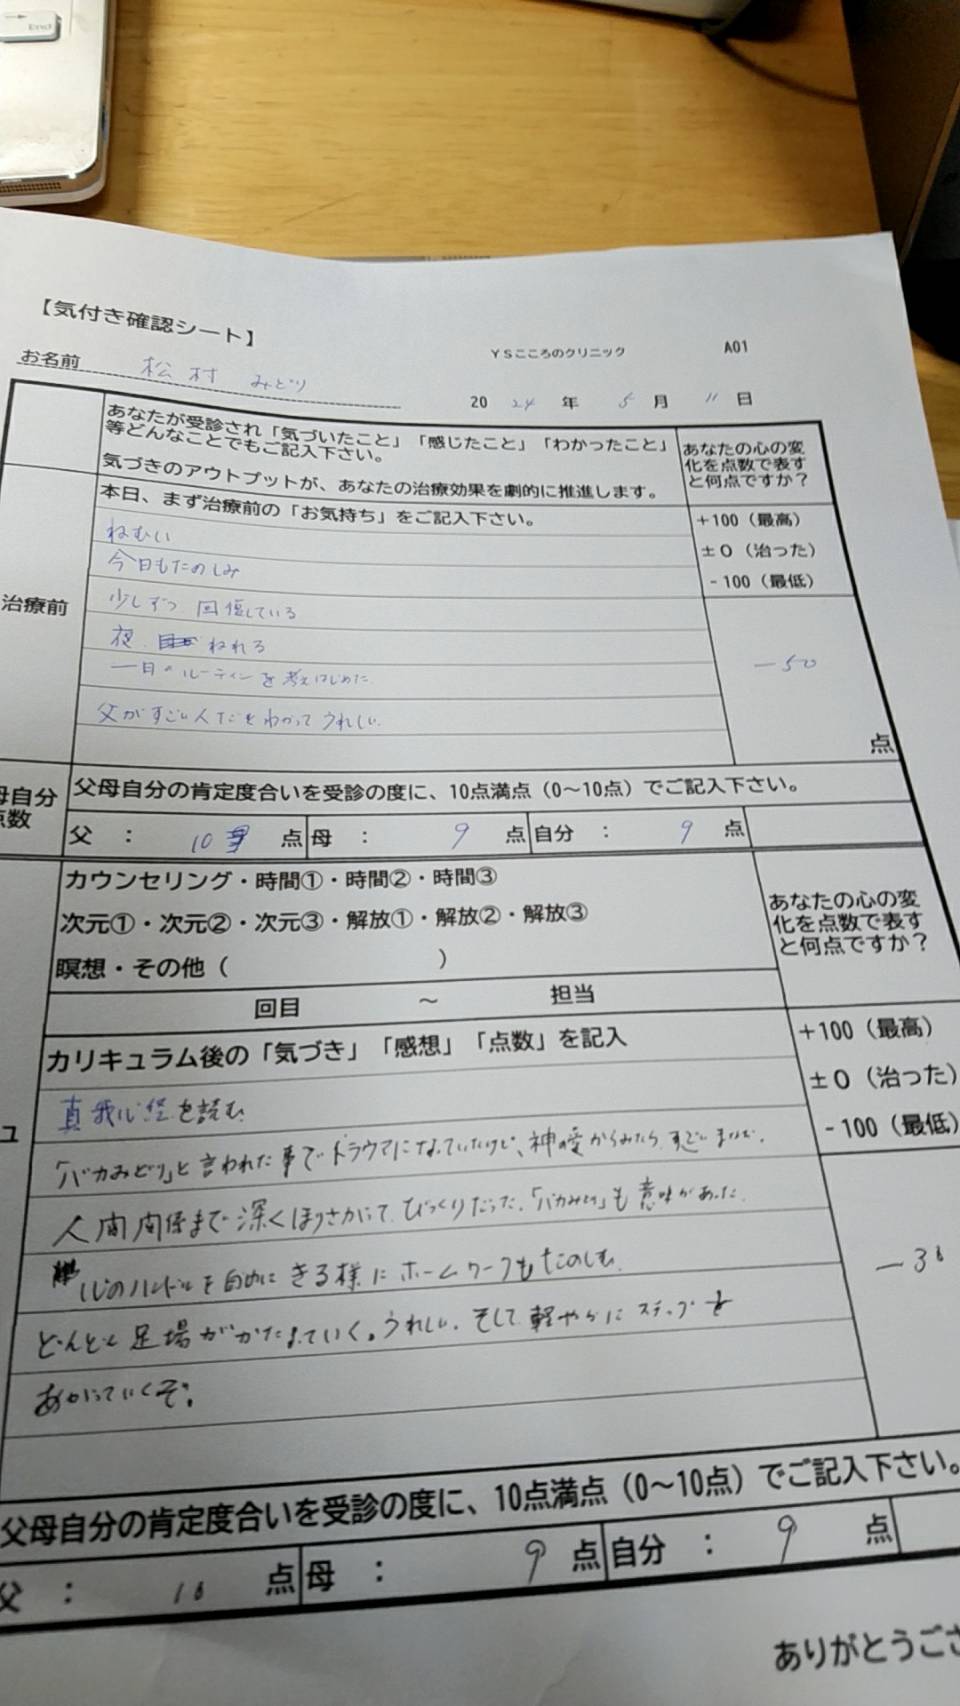 End
【気付き確認シート】
YSこころのクリニック A01
お名前 松村 みどり
20 24 年 5 月 11 日
あなたが受診され「気づいたこと」「感じたこと」「わかったこと」
等どんなことでもご記入下さい。
気づきのアウトプットが、あなたの治療効果を劇的に推進します。
あなたの心の変
化を点数で表す
と何点ですか？
治療前
本日、まず治療前の「お気持ち」をご記入下さい。
+100（最高）
±0（治った）
-100（最低）
ねむい
今日もたのしみ
少しずつ 回復している
夜 ねれる
一日のルーティンを考えはじめた
父がすごい人だとわかってうれしい
-50
点
母自分
点数
父母自分の肯定度合いを受診の度に、10点満点（0～10点）でご記入下さい。
父 ： 10 点 母 ： 9 点 自分 ： 9 点
カウンセリング・時間①・時間②・時間③
次元①・次元②・次元③・解放①・解放②・解放③
瞑想・その他（ ）
回目 ～ 担当
あなたの心の変
化を点数で表す
と何点ですか？
カリキュラム後の「気づき」「感想」「点数」を記入
+100（最高）
±0（治った）
-100（最低）
ュ
真我心経を読む
「バカみどり」と言われた事でトラウマになっていたけど、神の愛からみたら、すごいまで、
人間関係まで深くほりさがって、びっくりだった。「バカみどり」も意味があった。
心のハンドルを自由にきる様にホームワークもたのしむ。
どんどん足場がかたまっていく。うれしい。そして軽やかにステップを
あがっていくぞ。
-30
父母自分の肯定度合いを受診の度に、10点満点（0～10点）でご記入下さい。
父 ： 10 点 母 ： 9 点 自分 ： 9 点
ありがとうござ